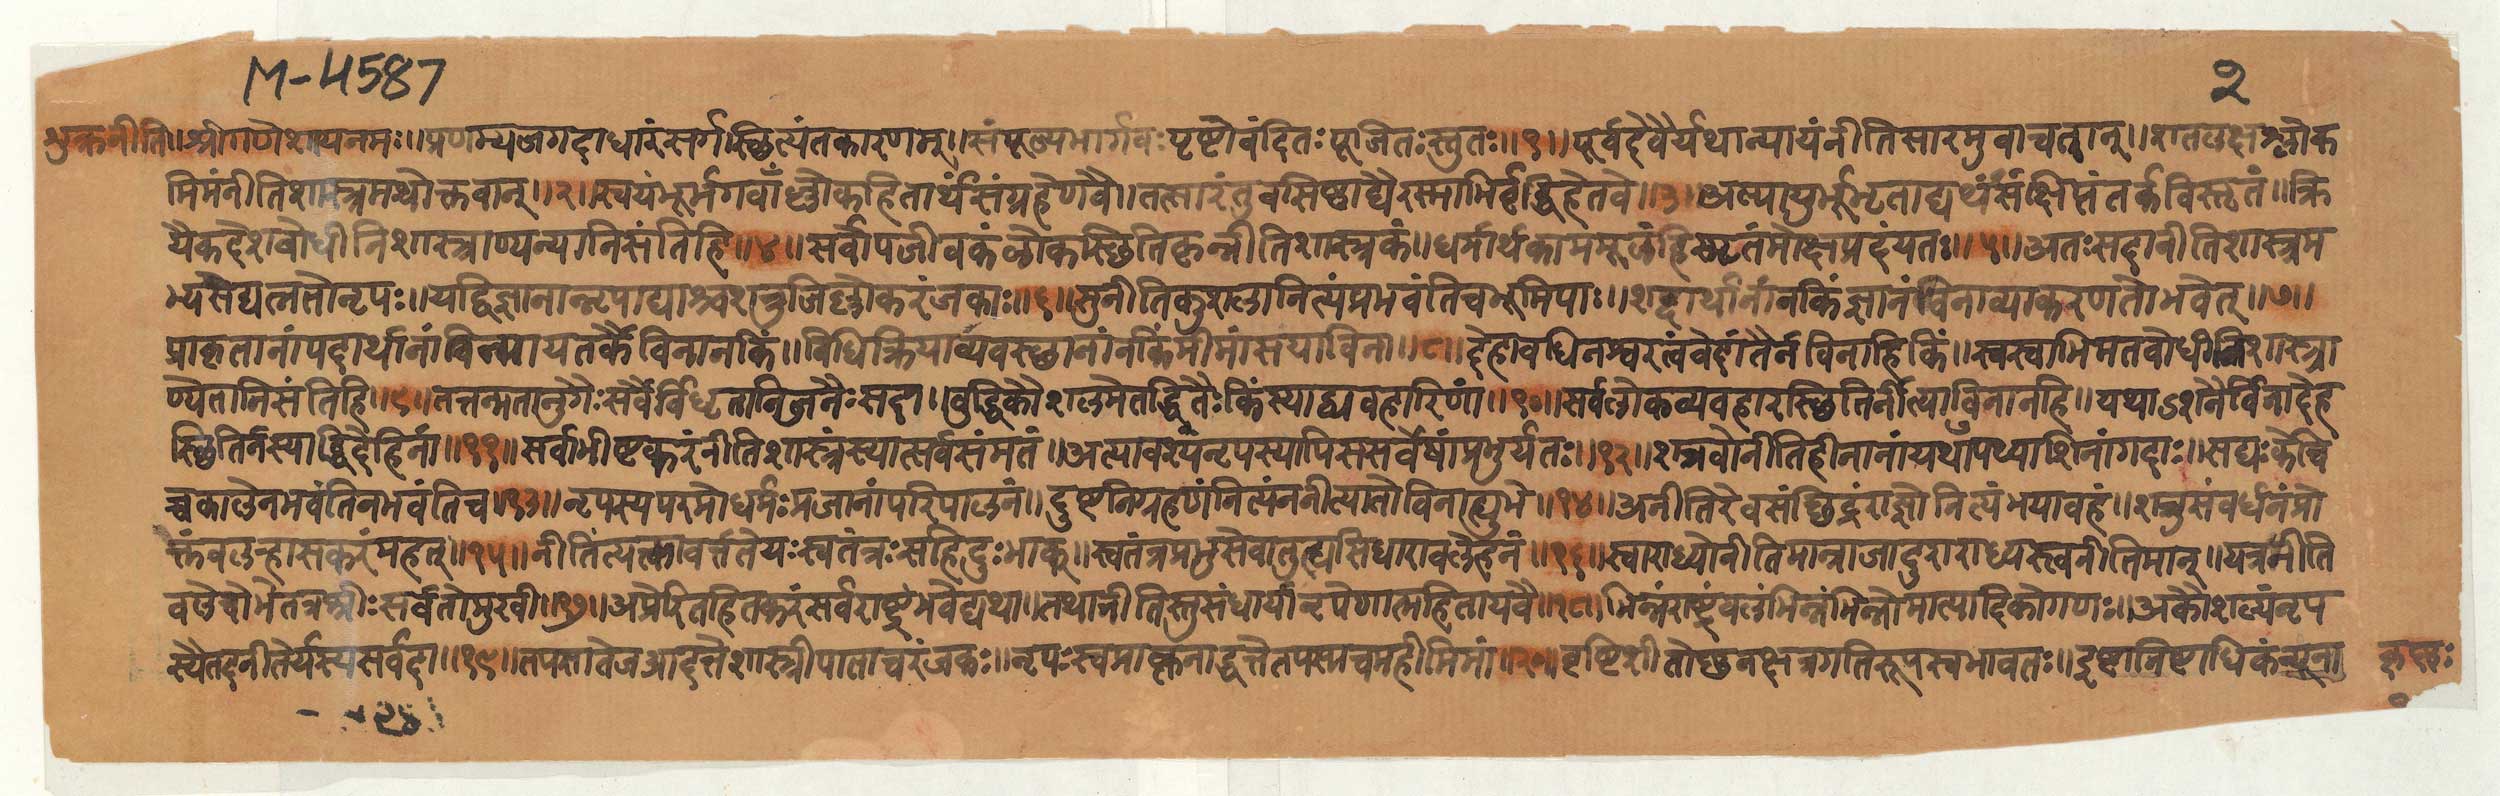 M-4587
२
शुक्रनीति॥श्रीगणेशायनमः॥प्रणम्यजगदाधारंसर्गस्थित्यंतकारणम्॥संपूज्यभार्गवःपृष्टोवंदितःपूजितःस्तुतः॥१॥पूर्वदेवैर्यथान्यायंनीतिसारमुवाचतान्॥शतलक्षश्लोक
मितंनीतिशास्त्रमथोक्तवान्॥२॥स्वयंभूर्भगवाँल्लोकहितार्थंसंग्रहेणवै॥तत्सारंतुवसिष्ठाद्यैरस्माभिर्वृद्धिहेतवे॥३॥अल्पायुर्भूभृताद्यर्थंसंक्षिप्तंतर्कविस्तृतं॥क्रि
यैकदेशबोधीनिशास्त्राण्यन्यानिसंतिहि॥४॥सर्वोपजीवकंलोकस्थितिकृन्नीतिशास्त्रकं॥धर्मार्थकाममूलंहिस्मृतंमोक्षप्रदंयतः॥५॥अतःसदानीतिशास्त्रम
भ्यसेद्यत्नतोनृपः॥यद्विज्ञानान्नृपाद्याश्चशत्रुजिल्लोकरंजकाः॥६॥सुनीतिकुशलानित्यंप्रभवंतिचभूमिपाः॥शब्दार्थानांनकिंज्ञानंविनाव्याकरणतोभवेत्॥७॥
प्राकृतानांपदार्थानांविन्यायतर्कैर्विनानकिं॥विधिक्रियाव्यवस्थानांनकिंमीमांसयाविना॥८॥देहावधिनश्वरत्वंवेदांतैर्नविनाहिकिं॥स्वस्वाभिमतबोधीनिशास्त्रा
ण्येतानिसंतिहि॥९॥तत्तन्मतानुगैःसर्वैर्विधृतानिजनैःसदा॥बुद्धिकौशलमेतद्धितैःकिंस्याद्व्यवहारिणां॥१०॥सर्वलोकव्यवहारस्थितिर्नीत्याविनानहि॥यथाऽशनैर्विनादेह
स्थितिर्नस्याद्धिदेहिनां॥११॥सर्वाभीष्टकरंनीतिशास्त्रंस्यात्सर्वसंमतं॥अत्यावश्यंनृपस्यापिससर्वेषांप्रभुर्यतः॥१२॥शत्रवोनीतिहीनानांयथापथ्याशिनांगदाः॥सद्यःकेचि
च्चकालेनभवंतिनभवंतिच॥१३॥नृपस्यपरमोधर्मःप्रजानांपरिपालनं॥दुष्टनिग्रहणंनित्यंननीत्यातोविनाह्युभे॥१४॥अनीतिरेवसंछिद्रंराज्ञोनित्यंभयावहं॥शत्रुसंवर्धनंप्रो
क्तंबलह्रासकरंमहत्॥१५॥नीतिंत्यक्त्वावर्त्ततेयःस्वतंत्रःसहिदुःखभाक्॥स्वतंत्रप्रभुसेवातुह्यसिधारावलेहनं॥१६॥स्वाराध्योनीतिमान्राजादुराराध्यस्त्वनीतिमान्॥यत्रनीति
बलेचोभेतत्रश्रीःसर्वतोमुखी॥१७॥अप्रेरितहितकरंसर्वराष्ट्रंभवेद्यथा॥तथानीतिस्तुसंधार्यानृपेणात्महितायवै॥१८॥भिन्नंराष्ट्रंबलंभिन्नंभिन्नोमात्यादिकोगणः॥अकौशल्यंनृप
स्यैतदनीतेर्यस्यसर्वदा॥१९॥तपसातेजआदत्तेशास्त्रीपाताचरंजकः॥नृपःस्वप्राक्तनाद्धत्तेतपसाचमहीमिमां॥२०॥वृष्टिशीतोष्णनक्षत्रगतिरूपस्वभावतः॥इष्टानिष्टाधिकंन्यूना